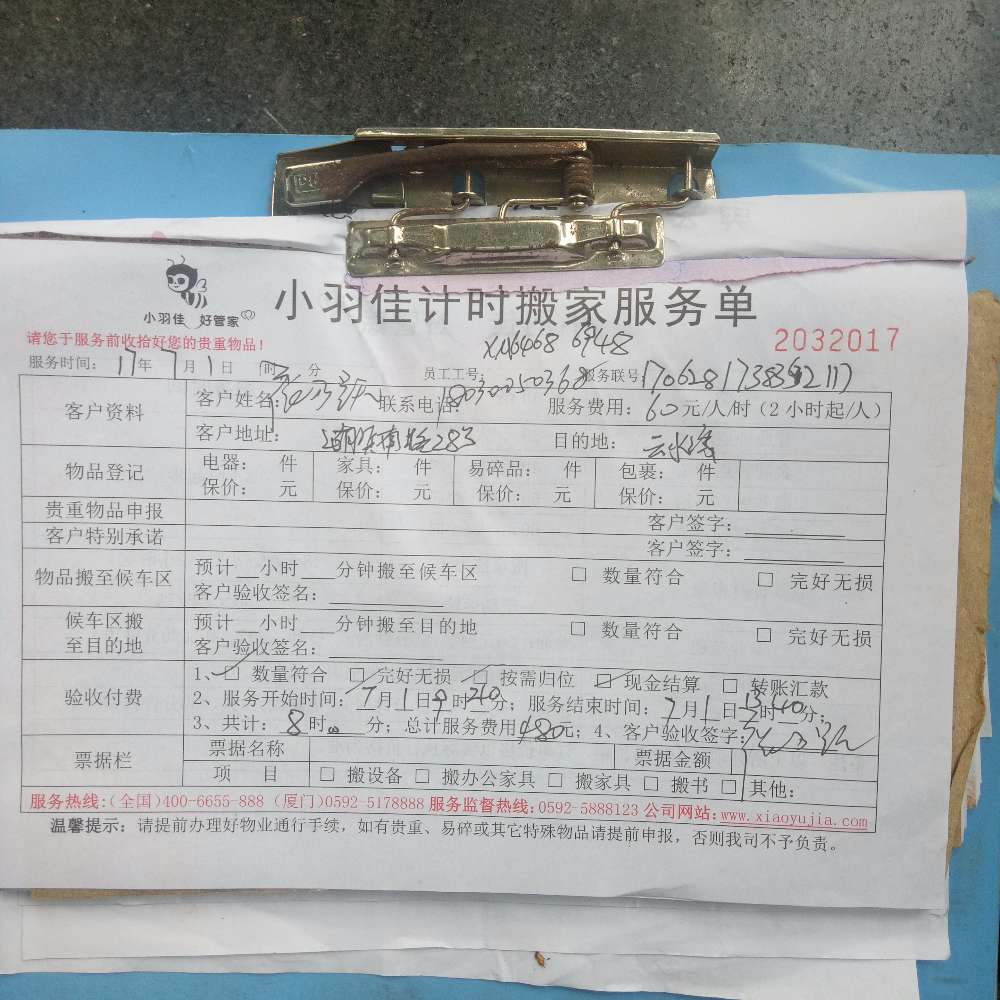 小羽佳 好管家
小羽佳计时搬家服务单
请您于服务前收拾好您的贵重物品！
XM6468 6948
2032017
服务时间：17年7月1日 时 分 员工工号： 服务联号：
客户资料 客户姓名： 联系电话：18030250368 服务费用：60元/人/时（2小时起/人）
客户地址： 283 目的地：
物品登记 电器： 件 家具： 件 易碎品： 件 包裹： 件
保价： 元 保价： 元 保价： 元 保价： 元
贵重物品申报 客户签字：
客户特别承诺 客户签字：
物品搬至候车区 预计 小时 分钟搬至候车区 □ 数量符合 □ 完好无损
客户验收签名：
候车区搬至目的地 预计 小时 分钟搬至目的地 □ 数量符合 □ 完好无损
客户验收签名：
验收付费 1、□ 数量符合 □ 完好无损 □ 按需归位 □ 现金结算 □ 转账汇款
2、服务开始时间：7月1日9时 分；服务结束时间：7月1日13时40分；
3、共计：8时 分；总计服务费用480元；4、客户验收签字：
票据栏 票据名称 票据金额
项 目 □ 搬设备 □ 搬办公家具 □ 搬家具 □ 搬书 □ 其他：
服务热线：(全国)400-6655-888 (厦门)0592-5178888 服务监督热线：0592-5888123 公司网站：www.xiaoyujia.com
温馨提示：请提前办理好物业通行手续，如有贵重、易碎或其它特殊物品请提前申报，否则我司不予负责。